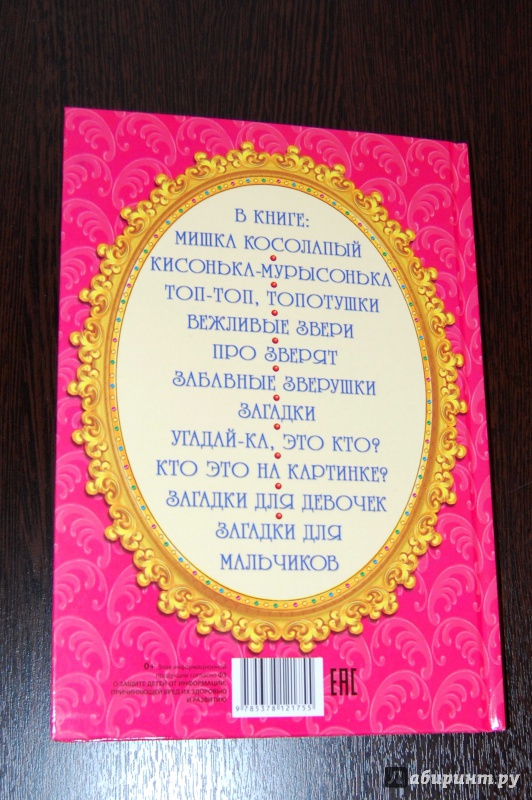 В КНИГЕ:
МИШКА КОСОЛАПЫЙ
КИСОНЬКА-МУРЫСОНЬКА
ТОП-ТОП, ТОПОТУШКИ
ВЕЖЛИВЫЕ ЗВЕРИ
ПРО ЗВЕРЯТ
ЗАБАВНЫЕ ЗВЕРУШКИ
ЗАГАДКИ
УГАДАЙ-КА, ЭТО КТО?
КТО ЭТО НА КАРТИНКЕ?
ЗАГАДКИ ДЛЯ ДЕВОЧЕК
ЗАГАДКИ ДЛЯ
МАЛЬЧИКОВ
0+ Знак информационной
продукции согласно ФЗ
О ЗАЩИТЕ ДЕТЕЙ ОТ ИНФОРМАЦИИ,
ПРИЧИНЯЮЩЕЙ ВРЕД ИХ ЗДОРОВЬЮ
И РАЗВИТИЮ
9 785378 121755
EAC
Лабиринт.ру